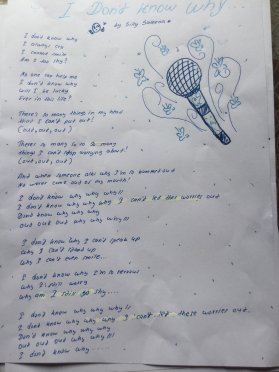 I Don't know Why...
by Silly Someone
I dont know why
I always cry
I cannot smile
Am I too shy?
No one can help me
I don't know why
Will I be lucky
Ever in this life?
There's so many things in my mind
Which I can't put out!
(out, out, out)
There's so many so so many
things I can't stop worrying about!
(out, out, out)
And when someone asks why I'm so bummed out
No words come out of my mouth!
I don't know why why why!!
I don't know why why why I can't let this worries out
Dont know why why why
Out out out why why why!!!
I don't know why I can't speak up
Why I can't
Why I can't even smile...
I don't know why I'm so nervous
Why I'm still worry
Why am I still so shy....
I don't know why why why!!
I dont know why why why I can't let these worries out.
Don't know why why why
Out out out why why why!!!
I don't know why.....